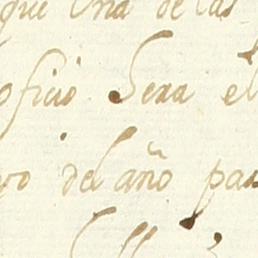 que Una de las
oficio Sera el
del año pas